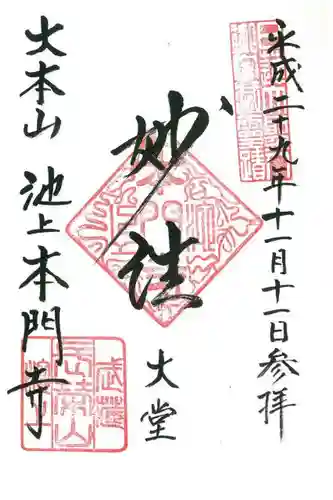 平成二十九年十一月十一日参拝
妙法
大堂
大本山 池上本門寺